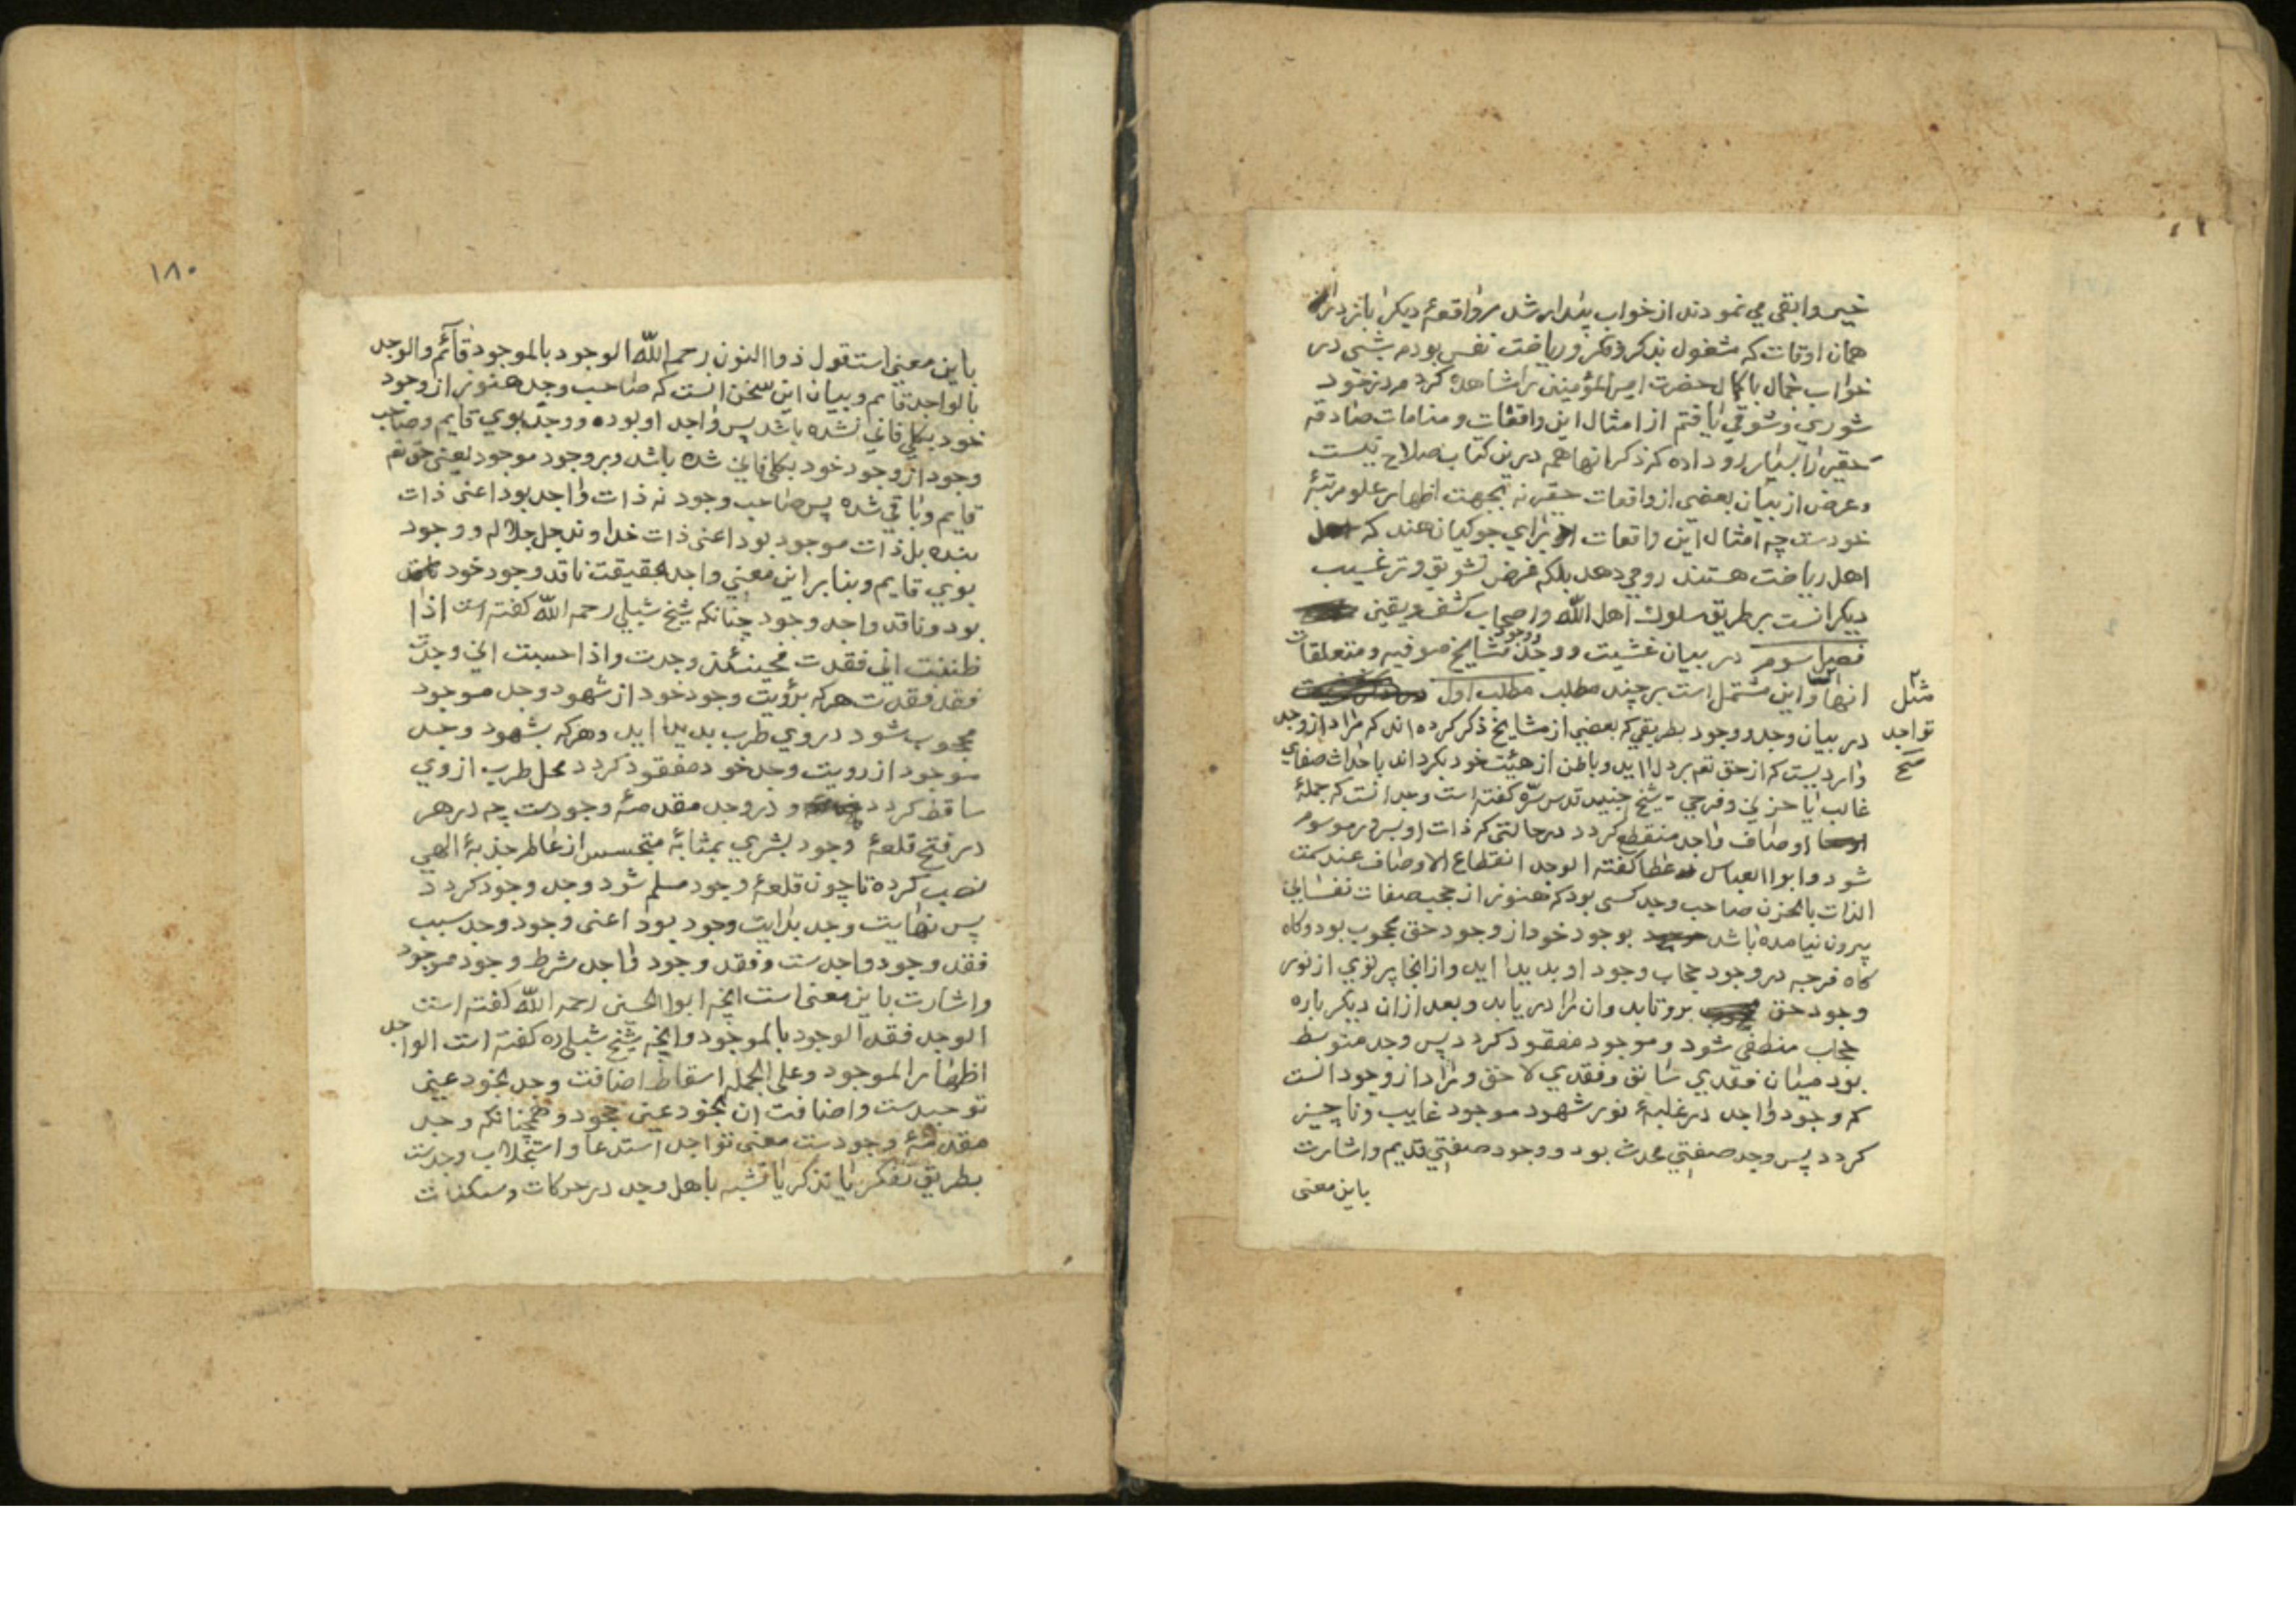 خیر وابقی می نمودند از خواب بیدار شدم واقعهٔ دیکر باز در
همان اوقات که مشغول بذکر و فکر و ریاضت نفس بودم شبی در
خواب جمال باکمال حضرت امیرالمؤمنین را مشاهده کردم در خود
شوری و شوقی یافتم از امثال این واقعات و منامات صادقه
حقیر را بسیار رو داده که ذکر انها هم درین کتاب صلاح نیست
و غرض از بیان بعضی از واقعات حقیر نه بجهت اظهار علو مرتبهٔ
خودست چه امثال این واقعات برای جوکیان هند که
اهل ریاضت هستند رو می دهد بلکه غرض تشویق و ترغیب
دیکرانست بر طریق سلوک اهل الله و اصحاب کشف و یقین
فصل سوم در بیان غشیت و وجد و وجود مشایخ صوفیه و متعلقات
انها و این مشتمل است بر چند مطلب مطلب اول
مثل
تواجد
صح
در بیان وجد و وجود بطریقی که بعضی از مشایخ ذکر کرده اند که مراد از وجد
واردیست که از حق تعم بر دل اید و باطن از هیئت خود بکرداند باحداث صفای
غالب یا حزنی و فرحی شیخ جنید قدس سره کفته است وجد انست که جملهٔ
اوصاف واجد منقطع کردد در حالتی که ذات او بسرور موسوم
شود و ابو العباس عطا کفته الوجد انقطاع الاوصاف عند سمت
الذات بالحزن صاحب وجد کسی بود که هنوز از حجب صفات نفسانی
بیرون نیامده باشد بوجود خود از وجود حق محجوب بود و کاه
کاه فرجه در وجود حجاب وجود او بدید اید و از انجا پرتوی از نور
وجود حق برو تابد و ان را در یابد و بعد از ان دیکر باره
حجاب منطفی شود و موجود مفقود کردد پس وجد متوسط
بود میان فقدی سابق و فقدی لاحق و مراد از وجود انست
که وجود واجد در غلبهٔ نور شهود موجود غایب و ناچیز
کردد پس وجد صفتی محدث بود و وجود صفتی قدیم و اشارت
باین معنی
۱۸۰
باین معنی است قول ذوا النون رحمه الله الوجود بالموجود قائم والوجد
بالواجد قایم و بیان این سخن انست که صاحب وجد هنوز از وجود
خود بکلی فانی نشده باشد پس واجد او بوده و وجد بوی قایم و صاحب
وجود از وجود خود بکلی فانی شده باشد و بر وجود موجود یعنی حق تعم
قایم و باقی شده پس صاحب وجود نه ذات واجد بود اعنی ذات
بنده بل ذات موجود بود اعنی ذات خداوند جل جلاله و وجود
بوی قایم و بنابر این معنی واجد بحقیقت فاقد وجود خود
بود و فاقد واجد وجود چنانکه شیخ شبلی رحمه الله کفته است اذا
ظننت انی فقدت فحینئذ وجدت واذا حسبت انی وجدت
فقد فقدت هر که برؤیت وجود خود از شهود وجد موجود
محجوب شود در وی طرب بدید اید و هر که بشهود وجد
موجود از رویت وجد خود مفقود کردد محل طرب از وی
ساقط کردد و در وجد مقدمهٔ وجودست چه در هر
در فتح قلعهٔ وجود بشری بمثابهٔ متجسس از عاطر جذبهٔ الهی
نصب کرده تا چون قلعهٔ وجود مسلم شود وجد وجود کردد
پس نهایت وجد بدایت وجود بود اعنی وجود وجد سبب
فقد وجود واجدست و فقد وجود واجد شرط وجود موجود
و اشارت باین معنی است انچه ابوا الحسن رحمه الله کفته است
الوجد فقد الوجود بالموجود و انچه شیخ شبلی ره کفته است الواجد
اظهار الموجود و علی الجمله اسقاط اضافت وجد بخود عین
توحیدست و اضافت ان بخود عین جحود و همچنانکه وجد
مقدمهٔ وجودست معنی تواجد استدعا و استجلاب وجدست
بطریق تفکر یا تذکر یا تشبه باهل وجد در حرکات و سکنات